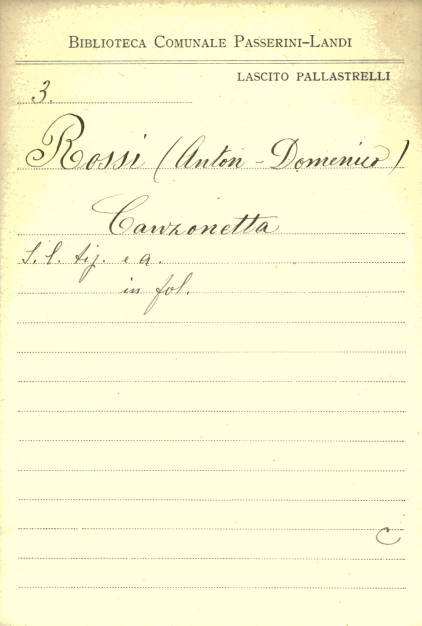 BIBLIOTECA COMUNALE PASSERINI-LANDI
LASCITO PALLASTRELLI
3.
Rossi (Anton-Domenico)
Canzonetta
S. l. tip. e a.
in fol.
C